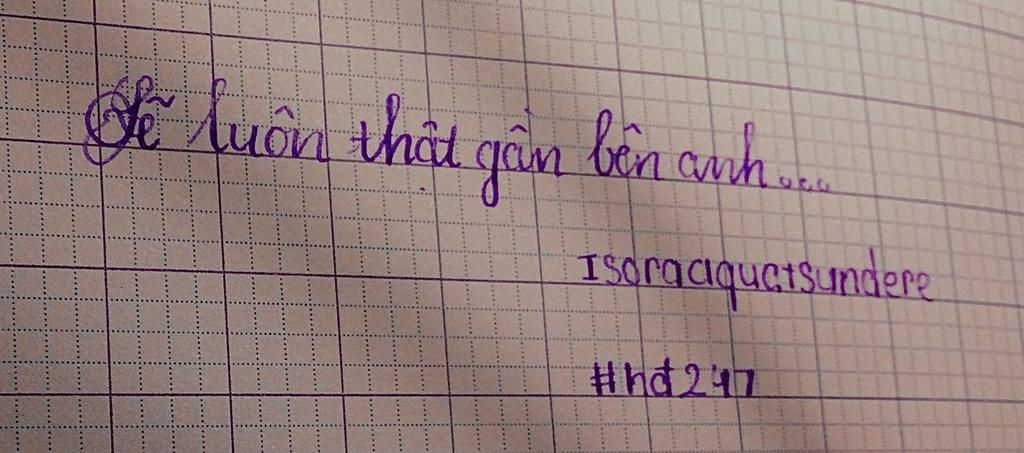 Sẽ luôn thật gần bên anh....
Isoraaquatsundere
#hd247